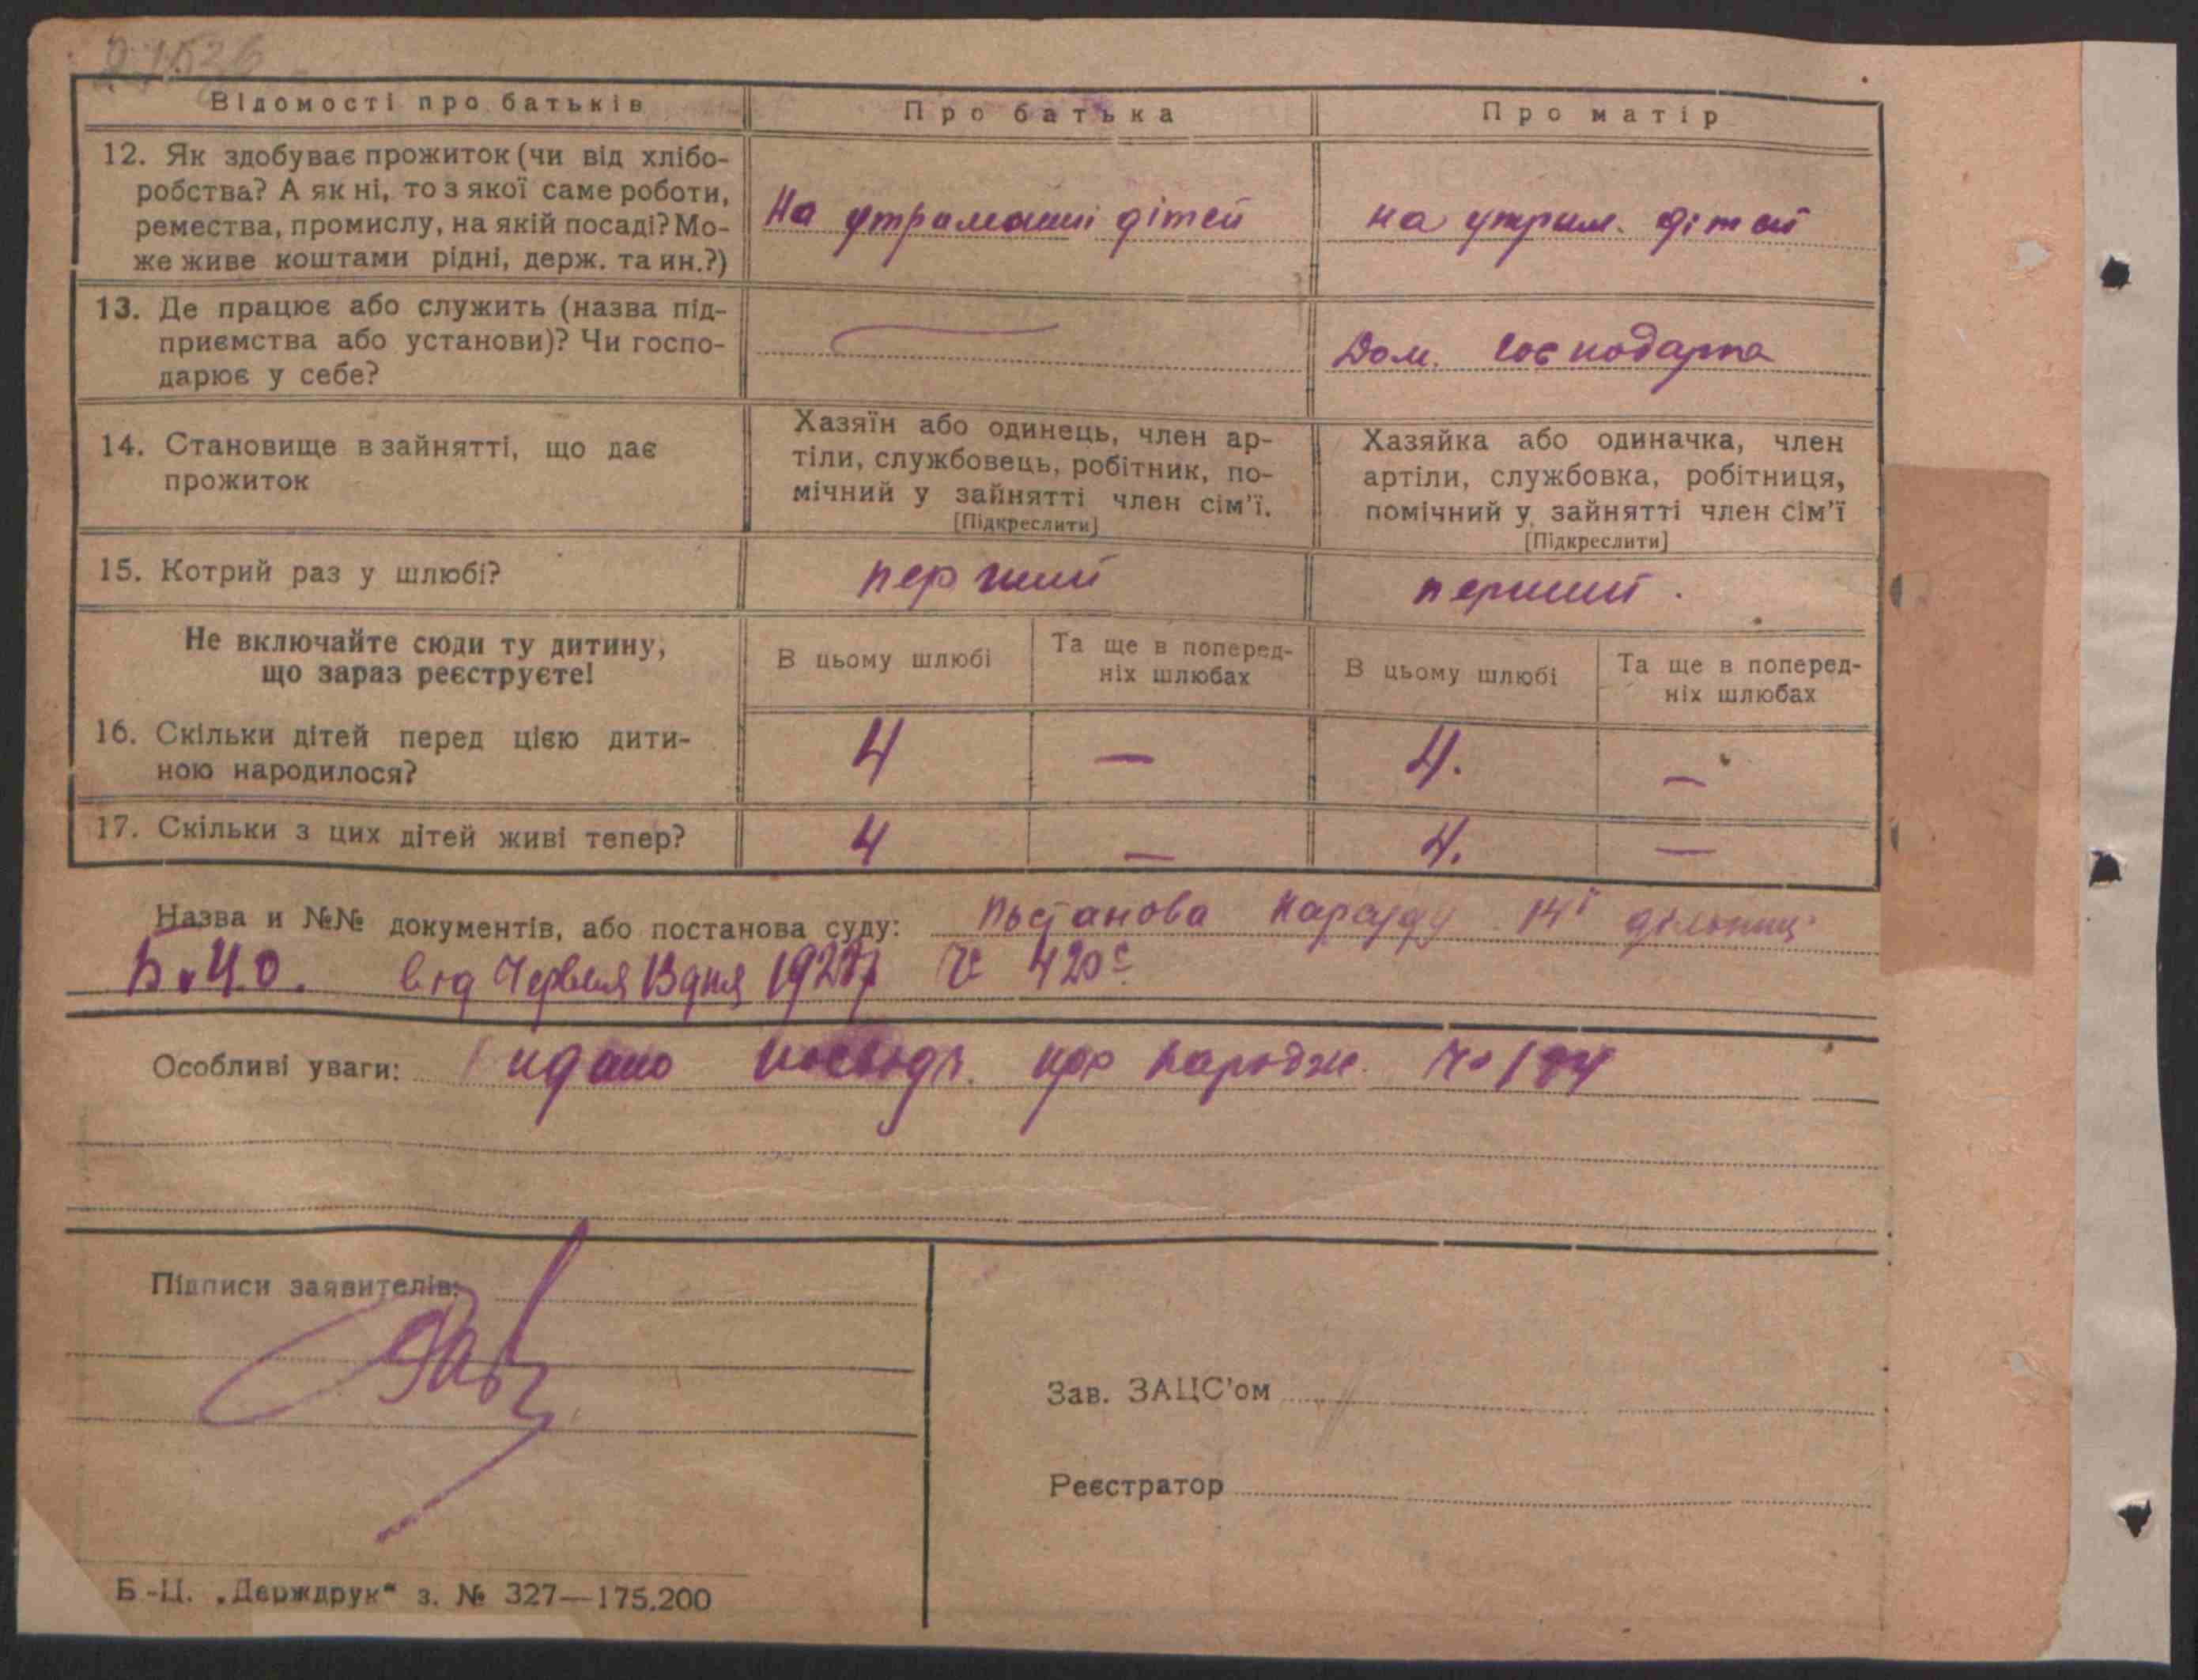 Відомості про батьків
Про батька
Про матір
12. Як здобуває прожиток (чи від хлібо-
робства? А як ні, то з якої саме роботи,
ремества, промислу, на якій посаді? Мо-
же живе коштами рідні, держ. та ин.?)
На утриманні дітей
на утрим. дітей
13. Де працює або служить (назва під-
приємства або установи)? Чи госпо-
дарює у себе?
Дом. Господарка
14. Становище в зайнятті, що дає
прожиток
Хазяїн або одинець, член ар-
тіли, службовець, робітник, по-
мічний у зайнятті член сім'ї.
[Підкреслити]
Хазяйка або одиначка, член
артіли, службовка, робітниця,
помічний у зайнятті член сім'ї
[Підкреслити]
15. Котрий раз у шлюбі?
перший
перший.
Не включайте сюди ту дитину,
що зараз реєструєте!
В цьому шлюбі
Та ще в поперед-
ніх шлюбах
В цьому шлюбі
Та ще в поперед-
ніх шлюбах
16. Скільки дітей перед цією дити-
ною народилося?
4
—
4.
—
17. Скільки з цих дітей живі тепер?
4
—
4.
—
Назва и №№ документів, або постанова суду: Постанова Нарсуду 14ї дільниці
від Червня 13 дня 1927 420
Особливі уваги: Видано посвідч. про народж. 194
Підписи заявителів:
Зав. ЗАЦС'ом
Реєстратор
Б-Ц. „Держдрук“ з. № 327—175.200